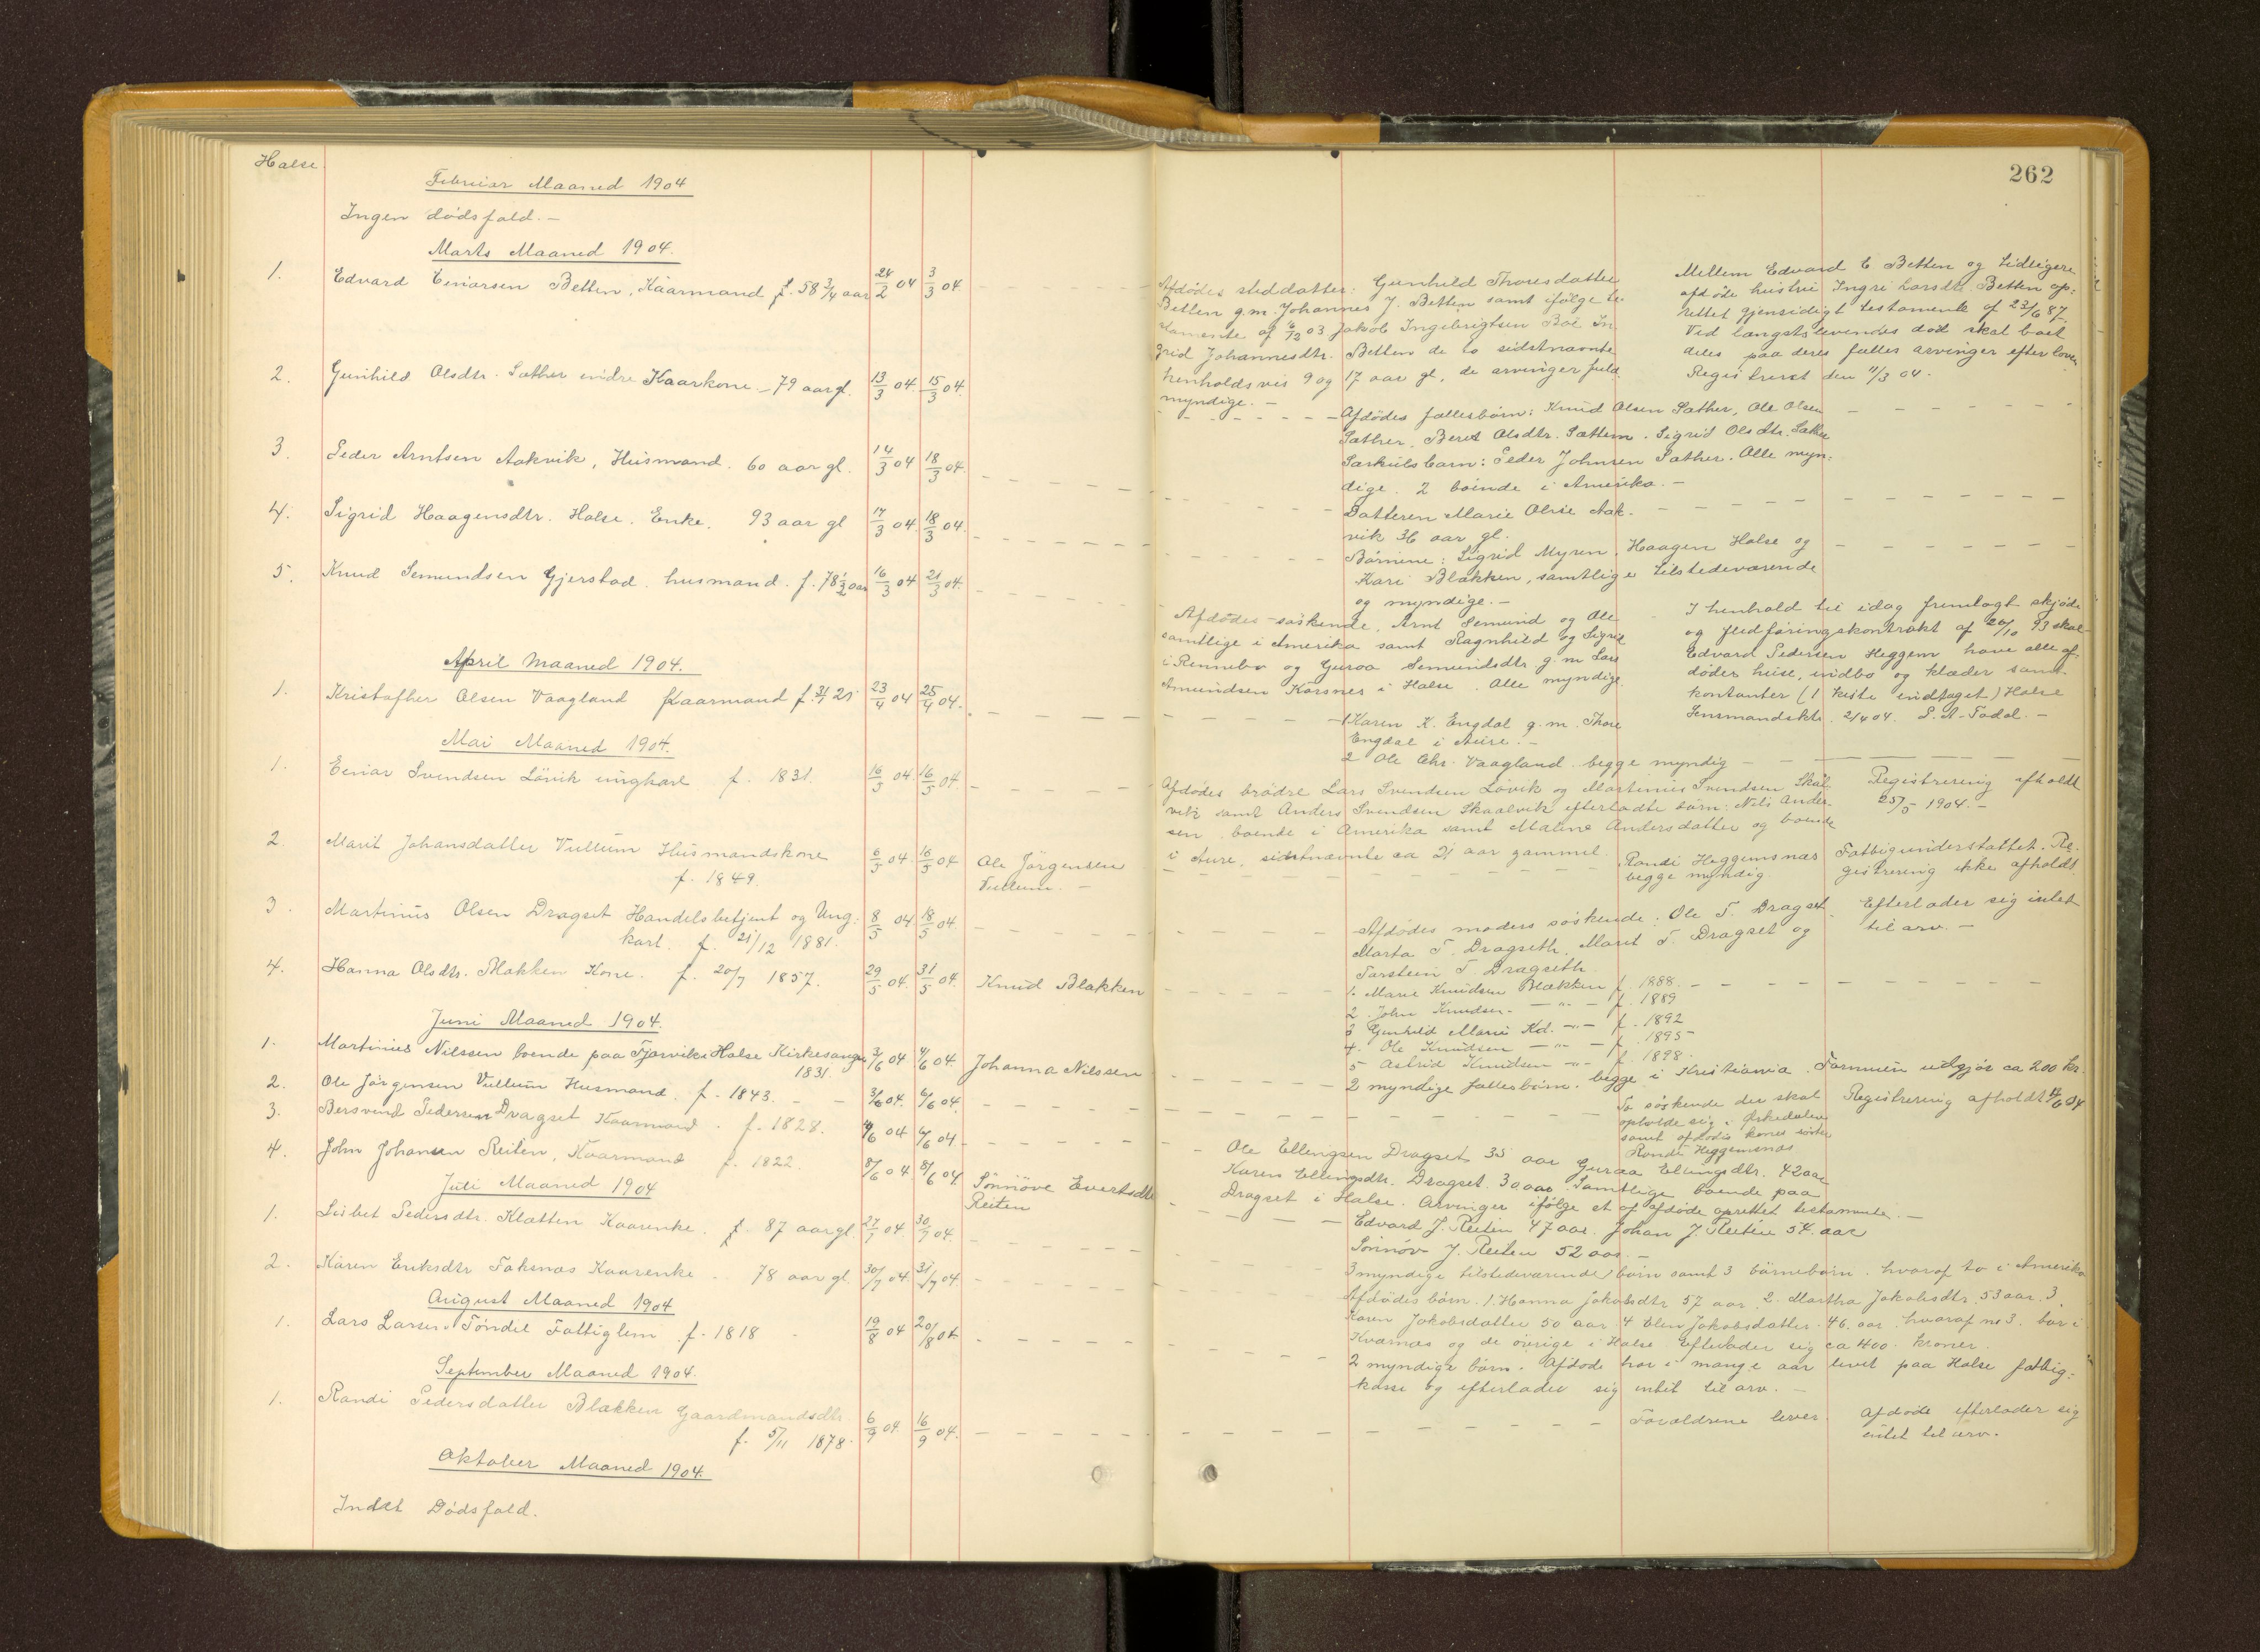 Halse.
262
Februar Maaned 1904
Ingen dödsfald. —
Marts Maaned 1904.
1. Edvard Einarsen Betten, Kaarmand f. 58 3/4 aar 24/2 04 3/3 04.
2. Gunhild Olsdtr. Sæther indre Kaarkone — 79 aar gl. 13/3 04. 15/3 04.
3. Peder Arntsen Aakvik, Husmand. 60 aar gl. 14/3 04 18/3 04.
4. Sigrid Haagensdtr. Halse. Enke. 93 aar gl 17/3 04. 18/3 04.
5. Knud Semundsen Gjerstad. husmand. f. 78 1/2 aar 16/3 04 21/3 04.
April Maaned 1904.
1. Kristofher Olsen Vaagland Kaarmand f. 3/4 21 23/4 04 25/4 04.
Mai Maaned 1904.
1. Einar Svendsen Lövik ungkarl f. 1831. 16/5 04. 16/5 04.
2. Marit Johansdatter Vullum Husmandskone 6/5 04. 16/5 04 Ole Jörgensen
f. 1849. Vullum. —
3. Martinus Olsen Dragset Handelsbetjent og Ung: 8/5 04 18/5 04.
karl. f. 21/12 1881.
4. Hanna Olsdtr. Blakken Kone. f. 20/7 1857. 29/5 04. 31/5 04. Knud Blakken
Juni Maaned 1904.
1. Martinus Nilssen boende paa Fjærvik i Halse Kirkesanger 3/6 04 4/6 04. Johanna Nilssen
1831
2. Ole Jörgensen Vullum Husmand. f. 1843. — — 3/6 04. 6/6 04.
3. Bersvend Pedersen Dragset Kaarmand. f. 1828. 4/6 04 6/6 04
4. John Johansen Reiten, Kaarmand f. 1822. 8/6 04. 8/6 04 Sönnöve Evertsdtr
Reiten
Juli Maaned 1904
1. Lisbet Pedersdtr. Klætten Kaarenke. f. 87 aar gl. 27/7 04. 30/7 04.
2. Karen Eriksdtr Foksnæs Kaarenke. 78 aar gl. 30/7 04. 31/7 04
August Maaned 1904
1. Lars Larsen Töndel Fattiglem. f. 1818 19/8 04 20/8 04
September Maaned 1904.
1. Randi Pedersdatter Blakken Gaardmandsdtr. 6/9 04. 16/9 04.
f. 5/11 1878.
Oktober Maaned 1904.
Indet Dödsfald.
Afdödes steddatter: Gunhild Thoresdatter
Betten g.m. Johannes J. Betten samt ifölge te-
stamente af 6/12 03 Jakob Ingebrigtsen Böe In-
grid Johannesdtr. Betten de to sidstnævnte
henholdsvis 9 og 17 aar gl, de arvinger fuld-
myndige. —
Mellem Edvard E Betten og tidligere
afdöde hustru Ingri Larsdtr. Betten op:
rettet gjensidigt testamente af 23/6 87.
Ved længstlevendes död skal boet
deles paa deres fælles arvinger efter loven
Registreret den 11/3 04.
Afdödes fællesbörn: Knud Olsen Sæther, Ole Olsen
Sæther, Beret Olsdtr. Sættem. Sigrid Olsdtr. Sæther
Særkulsbarn: Peder Johnsen Sæther. Alle myn:
dige. 2 boende i Amerika. —
Datteren Marie Oline Aak-
vik 36 aar gl.
Börnene: Sigrid Myren, Haagen Halse og
Kari Blakken, samtlige tilstedeværende
og myndige. —
Afdödes söskende, Arnt Semund og Ole
samtlige i Amerika samt Ragnhild og Sigrid
i Rennebo og Guroa Semundsdtr g.m Lars
Amundsen Korsnes i Halse. Alle myndige.
I henhold til idag fremlagt skjöde
og flidföringskontrakt af 20/10 93 skal
Edvard Pedersen Heggem have alle af:
dödes huse, indbo og klæder samt
kontanter (1 kiste indtaget) Halse
Lensmandsktr. 21/4 04. P. A. Todal. —
1 Karen K. Engdal g.m. Thore
Engdal i Aure. —
2 Ole Chr. Vaagland. begge myndig
Afdödes brödre Lars Svendsen Lövik og Martinus Svendsen Skål
vik samt Anders Svendsen Skaalvik efterladte börn: Nils Ander-
sen, boende i Amerika samt Maline Andersdatter og boende
i Aure, sidstnævnte ca 21 aar gammel.
Registrering afholdt
25/5 1904. —
Randi Heggemsnæs
begge myndig.
Fattigunderstöttet. Re-
gistrering ikke afholdt.
Afdödes moders söskende: Ole T. Dragset
Marta T. Dragseth, Marit T. Dragset og
Torstein T. Dragseth
Efterlader sig intet
til arv. —
1. Marie Knudsen Blakken f. 1888.
2. John Knudsen — " — f. 1889
3 Gunhild Marie Kd. — " — f. 1892
4. Ole Knudsen — " — f. 1895
5 Astrid Knudsen — " — f. 1898.
2 myndige fællesbörn. begge i Kristiania. Formuen udgjör ca 200 kr.
To söskende der skal
opholde sig i Orkedalen
samt afdödes kones söster
Randi Heggemsnæs
Registrering afholdt 14/6 04
Ole Ellingsen Dragset 35 aar Guraa Ellingsdtr. 42 aar
Karen Ellingsdtr. Dragset. 30 aar. Samtlige boende paa
Dragset i Halse. Arvinger ifölge et af afdöde oprettet testamente. —
Edvard J. Reiten 47 aar. Johan J. Reiten 54. aar
Sönnöv J. Reiten 52 aar. —
3 myndige tilstedeværende börn samt 3 börnebörn. hvoraf to i Amerika
Afdödes börn. 1. Hanna Jakobsdtr 57 aar, 2. Martha Jakobsdtr. 53 aar. 3
Karen Jakobsdatter 50 aar. 4 Elen Jakobsdatter 46. aar. hvoraf no 3. bor i
Kvernæs og de övrige i Halse. Efterlader sig ca 400. kroner.
2 myndige börn. Afdöde har i mange aar levet paa Halse fattig:
kasse og efterlader sig intet til arv. —
Forældrene lever.
Afdöde efterlader sig
intet til arv.